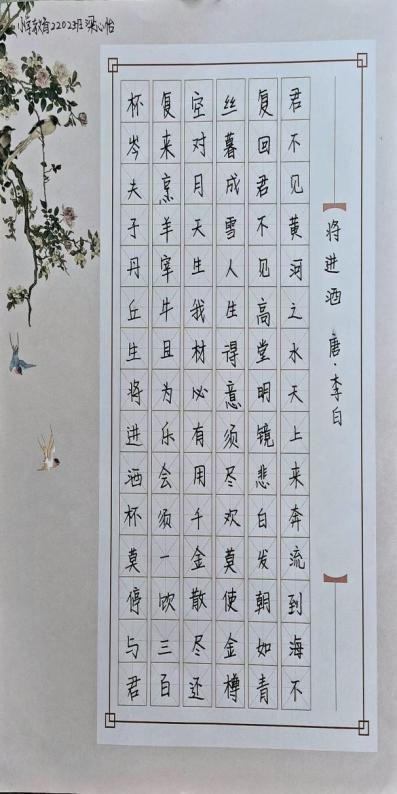 小学教育22023班 梁心怡
将进酒 唐·李白
君不见黄河之水天上来奔流到海不
复回君不见高堂明镜悲白发朝如青
丝暮成雪人生得意须尽欢莫使金樽
空对月天生我材必有用千金散尽还
复来烹羊宰牛且为乐会须一饮三百
杯岑夫子丹丘生将进酒杯莫停与君